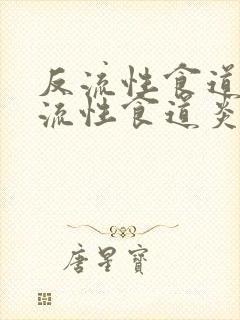 反流性食道
流性食道炎
唐星寶